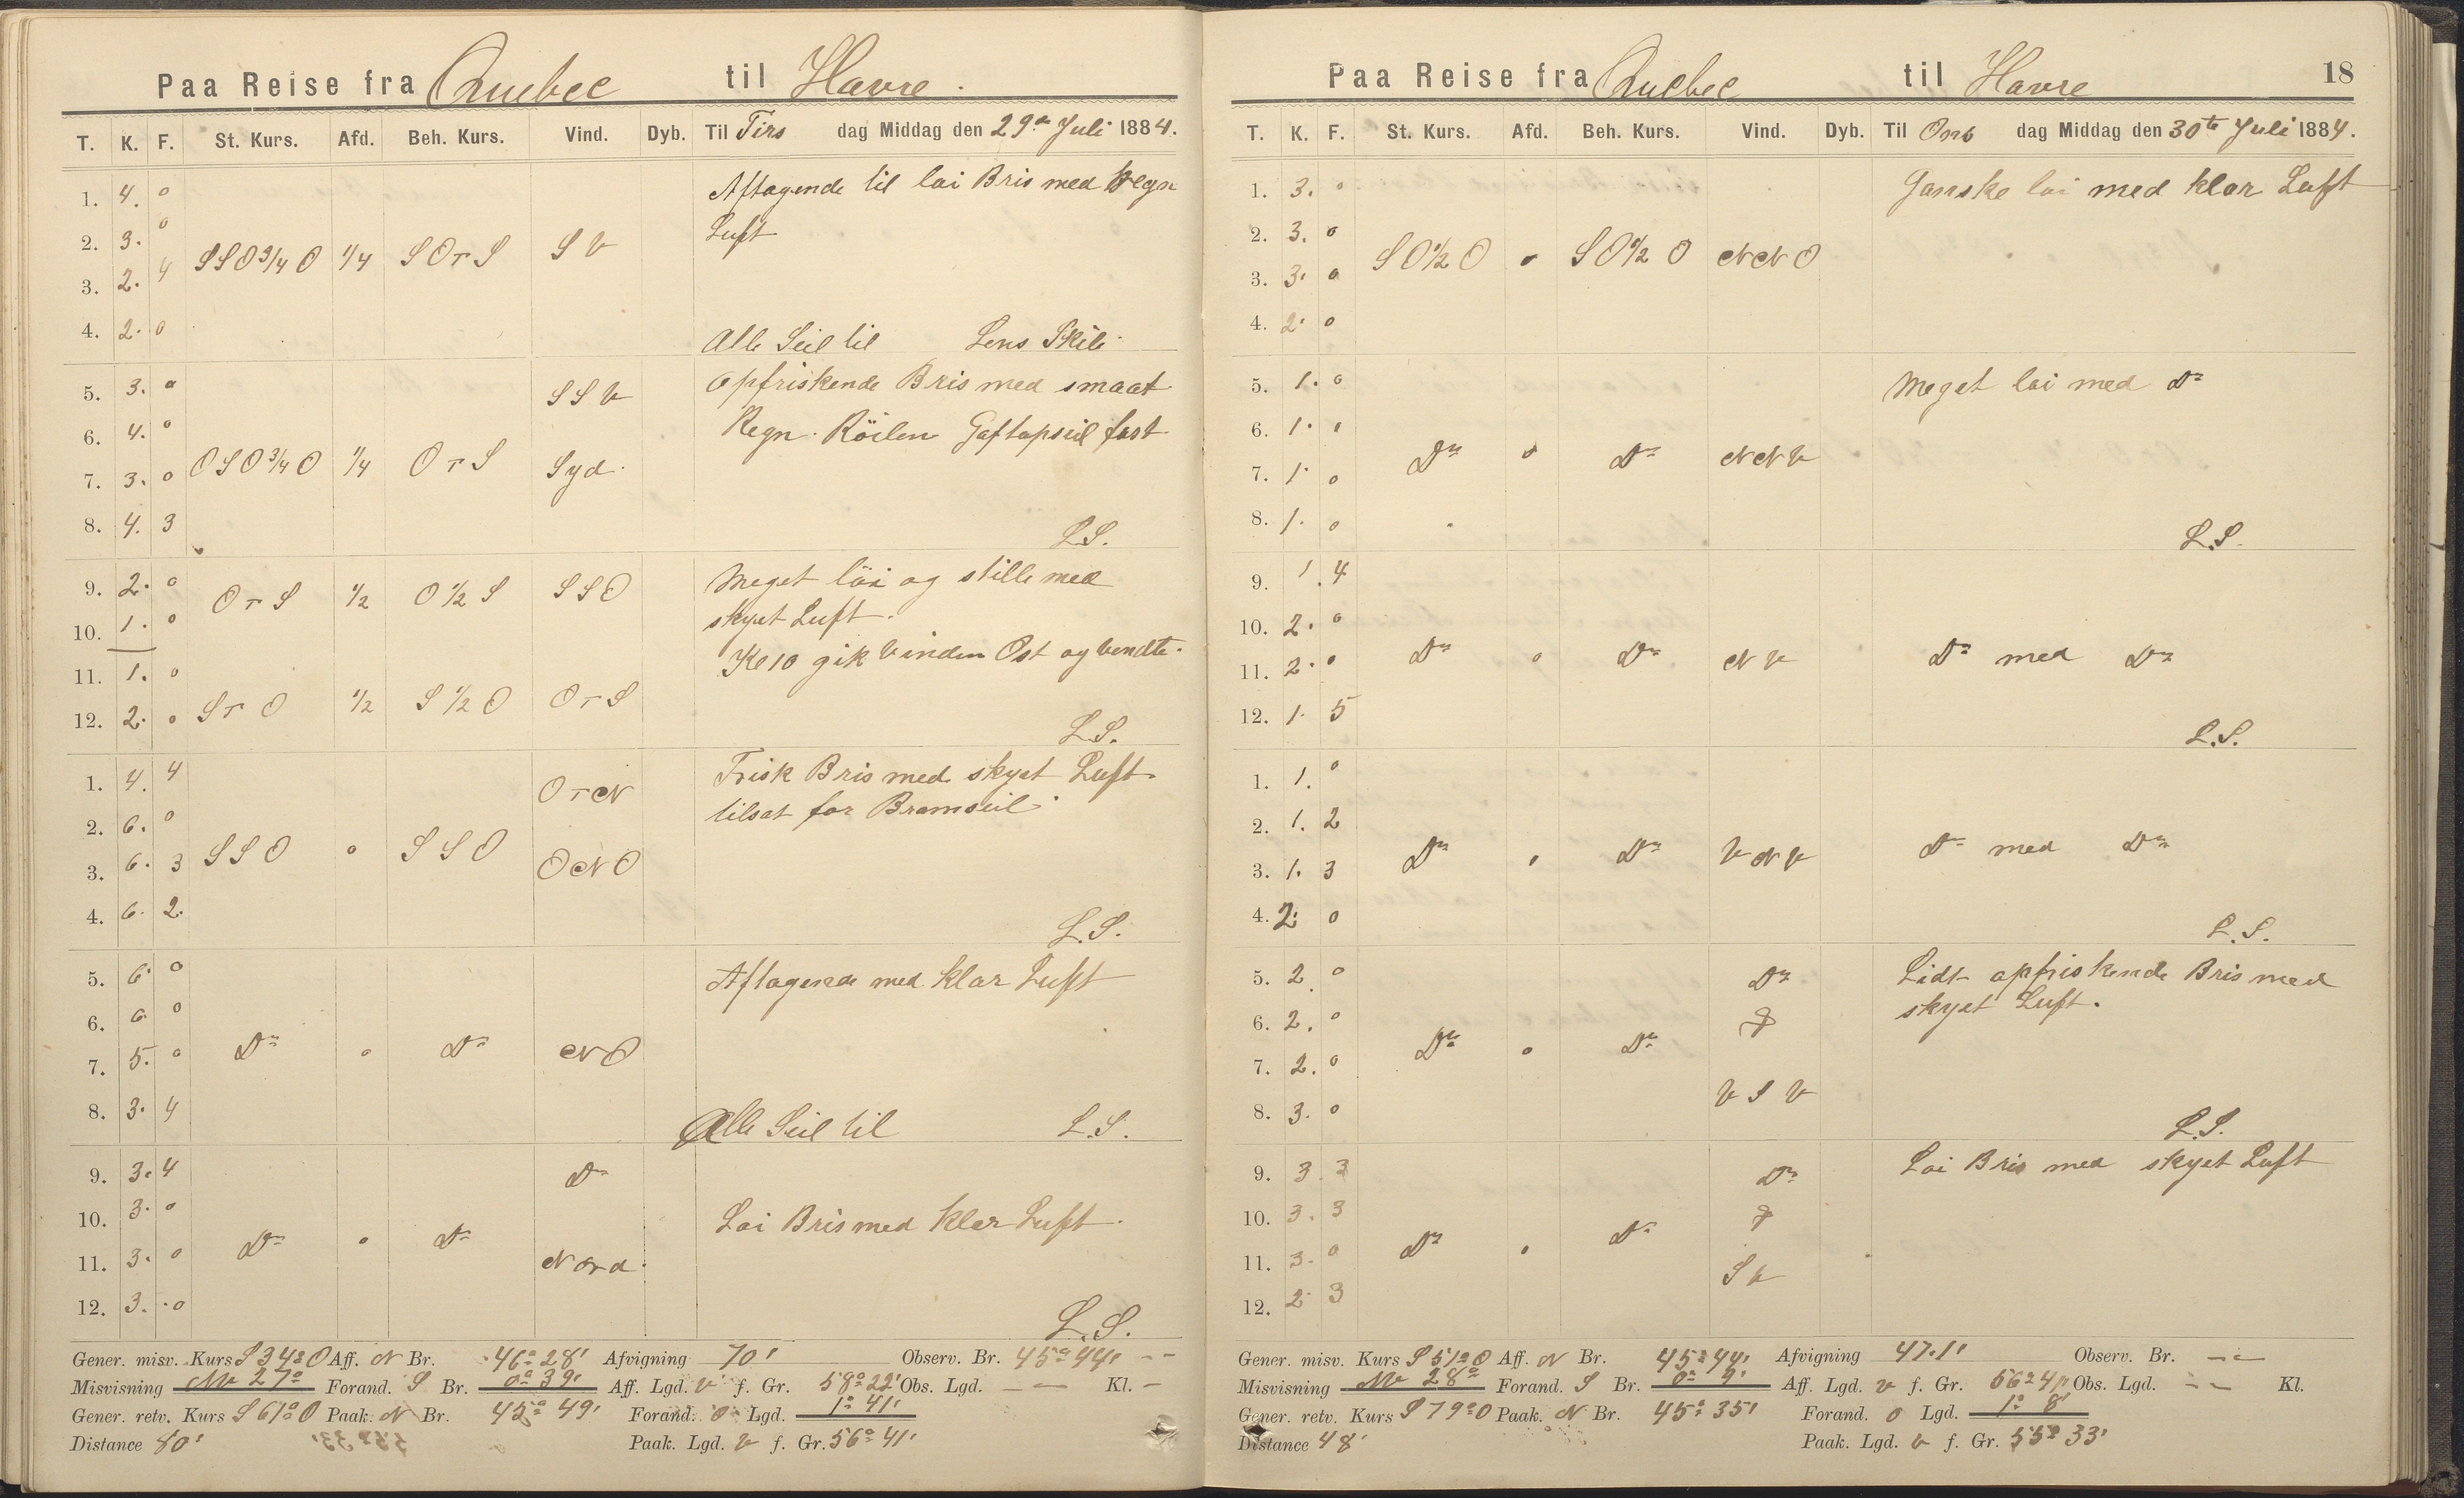 Paa Reise fra Quebec til Havre.
T. K. F. St. Kurs. Afd. Beh. Kurs. Vind. Dyb. Til Tirs dag Middag den 29de Juli 1884.
1. 4. 0 Aftagende til loi Bris med Regn
2. 3. 0 SSO 3/4 O 1/4 SOTS SV Luft
3. 2. 4
4. 2. 0 Alle Seil til Lens Skib.
5. 3. 0 SSV Opfriskende Bris med smaat
6. 4. 0 Regn. Röilen Gaftopseil fast.
7. 3. 0 OSO 3/4 O 1/4 OTS Syd.
8. 4. 3 L.S.
9. 2. 0 OTS 1/2 O 1/2 S SSO Meget löi og stille med
10. 1. 0 skyet Luft.
11. 1. 0 Kl 10 gik Vinden Ost og vendte.
12. 2. 0 STO 1/2 S 1/2 O OTS L.S.
1. 4. 4 OTN Frisk Bris med skyet Luft.
2. 6. 0 tilsat for Bramseil.
3. 6. 3 SSO 0 SSO ONO
4. 6. 2. L.S.
5. 6. 0 Aftagende med klar Luft
6. 6. 0
7. 5. 0 Do 0 Do NO
8. 3. 4 Alle Seil til L.S.
9. 3. 4 Do
10. 3. 0 Loi Bris med klar Luft.
11. 3. 0 Do 0 Do Nord.
12. 3. 0 L.S.
Gener. misv. Kurs S 34° O Aff. N Br. 46° 28' Afvigning 70' Observ. Br. 45° 44' --
Misvisning NV 27° Forand. S Br. 0° 39' Aff. Lgd. V f. Gr. 58° 22' Obs. Lgd. -- Kl. -
Gener. retv. Kurs S 61° O Paak. N Br. 45° 49' Forand. O Lgd. 1° 41'
Distance 80' Paak. Lgd. V f. Gr. 56° 41'
Paa Reise fra Quebec til Havre 18
T. K. F. St. Kurs. Afd. Beh. Kurs. Vind. Dyb. Til Ons dag Middag den 30te Juli 1884.
1. 3. 0 Ganske loi med klar Luft
2. 3. 0 SO 1/2 O 0 SO 1/2 O NNO
3. 3. 0
4. 2. 0
5. 1. 0 Meget loi med Do
6. 1.
7. 1. 0 Do 0 Do NNV
8. 1. 0 L.S.
9. 1. 4
10. 2. 0
11. 2. 0 Do 0 Do NV Do med Do
12. 1. 5 L.S.
1. 1. 0
2. 1. 2
3. 1. 3 Do 0 Do VNV Do med Do
4. 2. 0 L.S.
5. 2. 0 Do Lidt opfriskende Bris med
6. 2. 0 & skyet Luft.
7. 2. 0 Do 0 Do
8. 3. 0 VSV L.S.
9. 3. 3 Do Loi Bris med skyet Luft
10. 3. 3 &
11. 3. 0 Do 0 Do
12. 2. 3 SV
Gener. misv. Kurs S 51° O Aff. N Br. 45° 44' Afvigning 47.1' Observ. Br. --
Misvisning NV 28° Forand. S Br. 0° 9' Aff. Lgd. V f. Gr. 56° 41' Obs. Lgd. -- Kl.
Gener. retv. Kurs S 79° O Paak. N Br. 45° 35' Forand. O Lgd. 1° 8'
Distance 48' Paak. Lgd. V f. Gr. 55° 33'